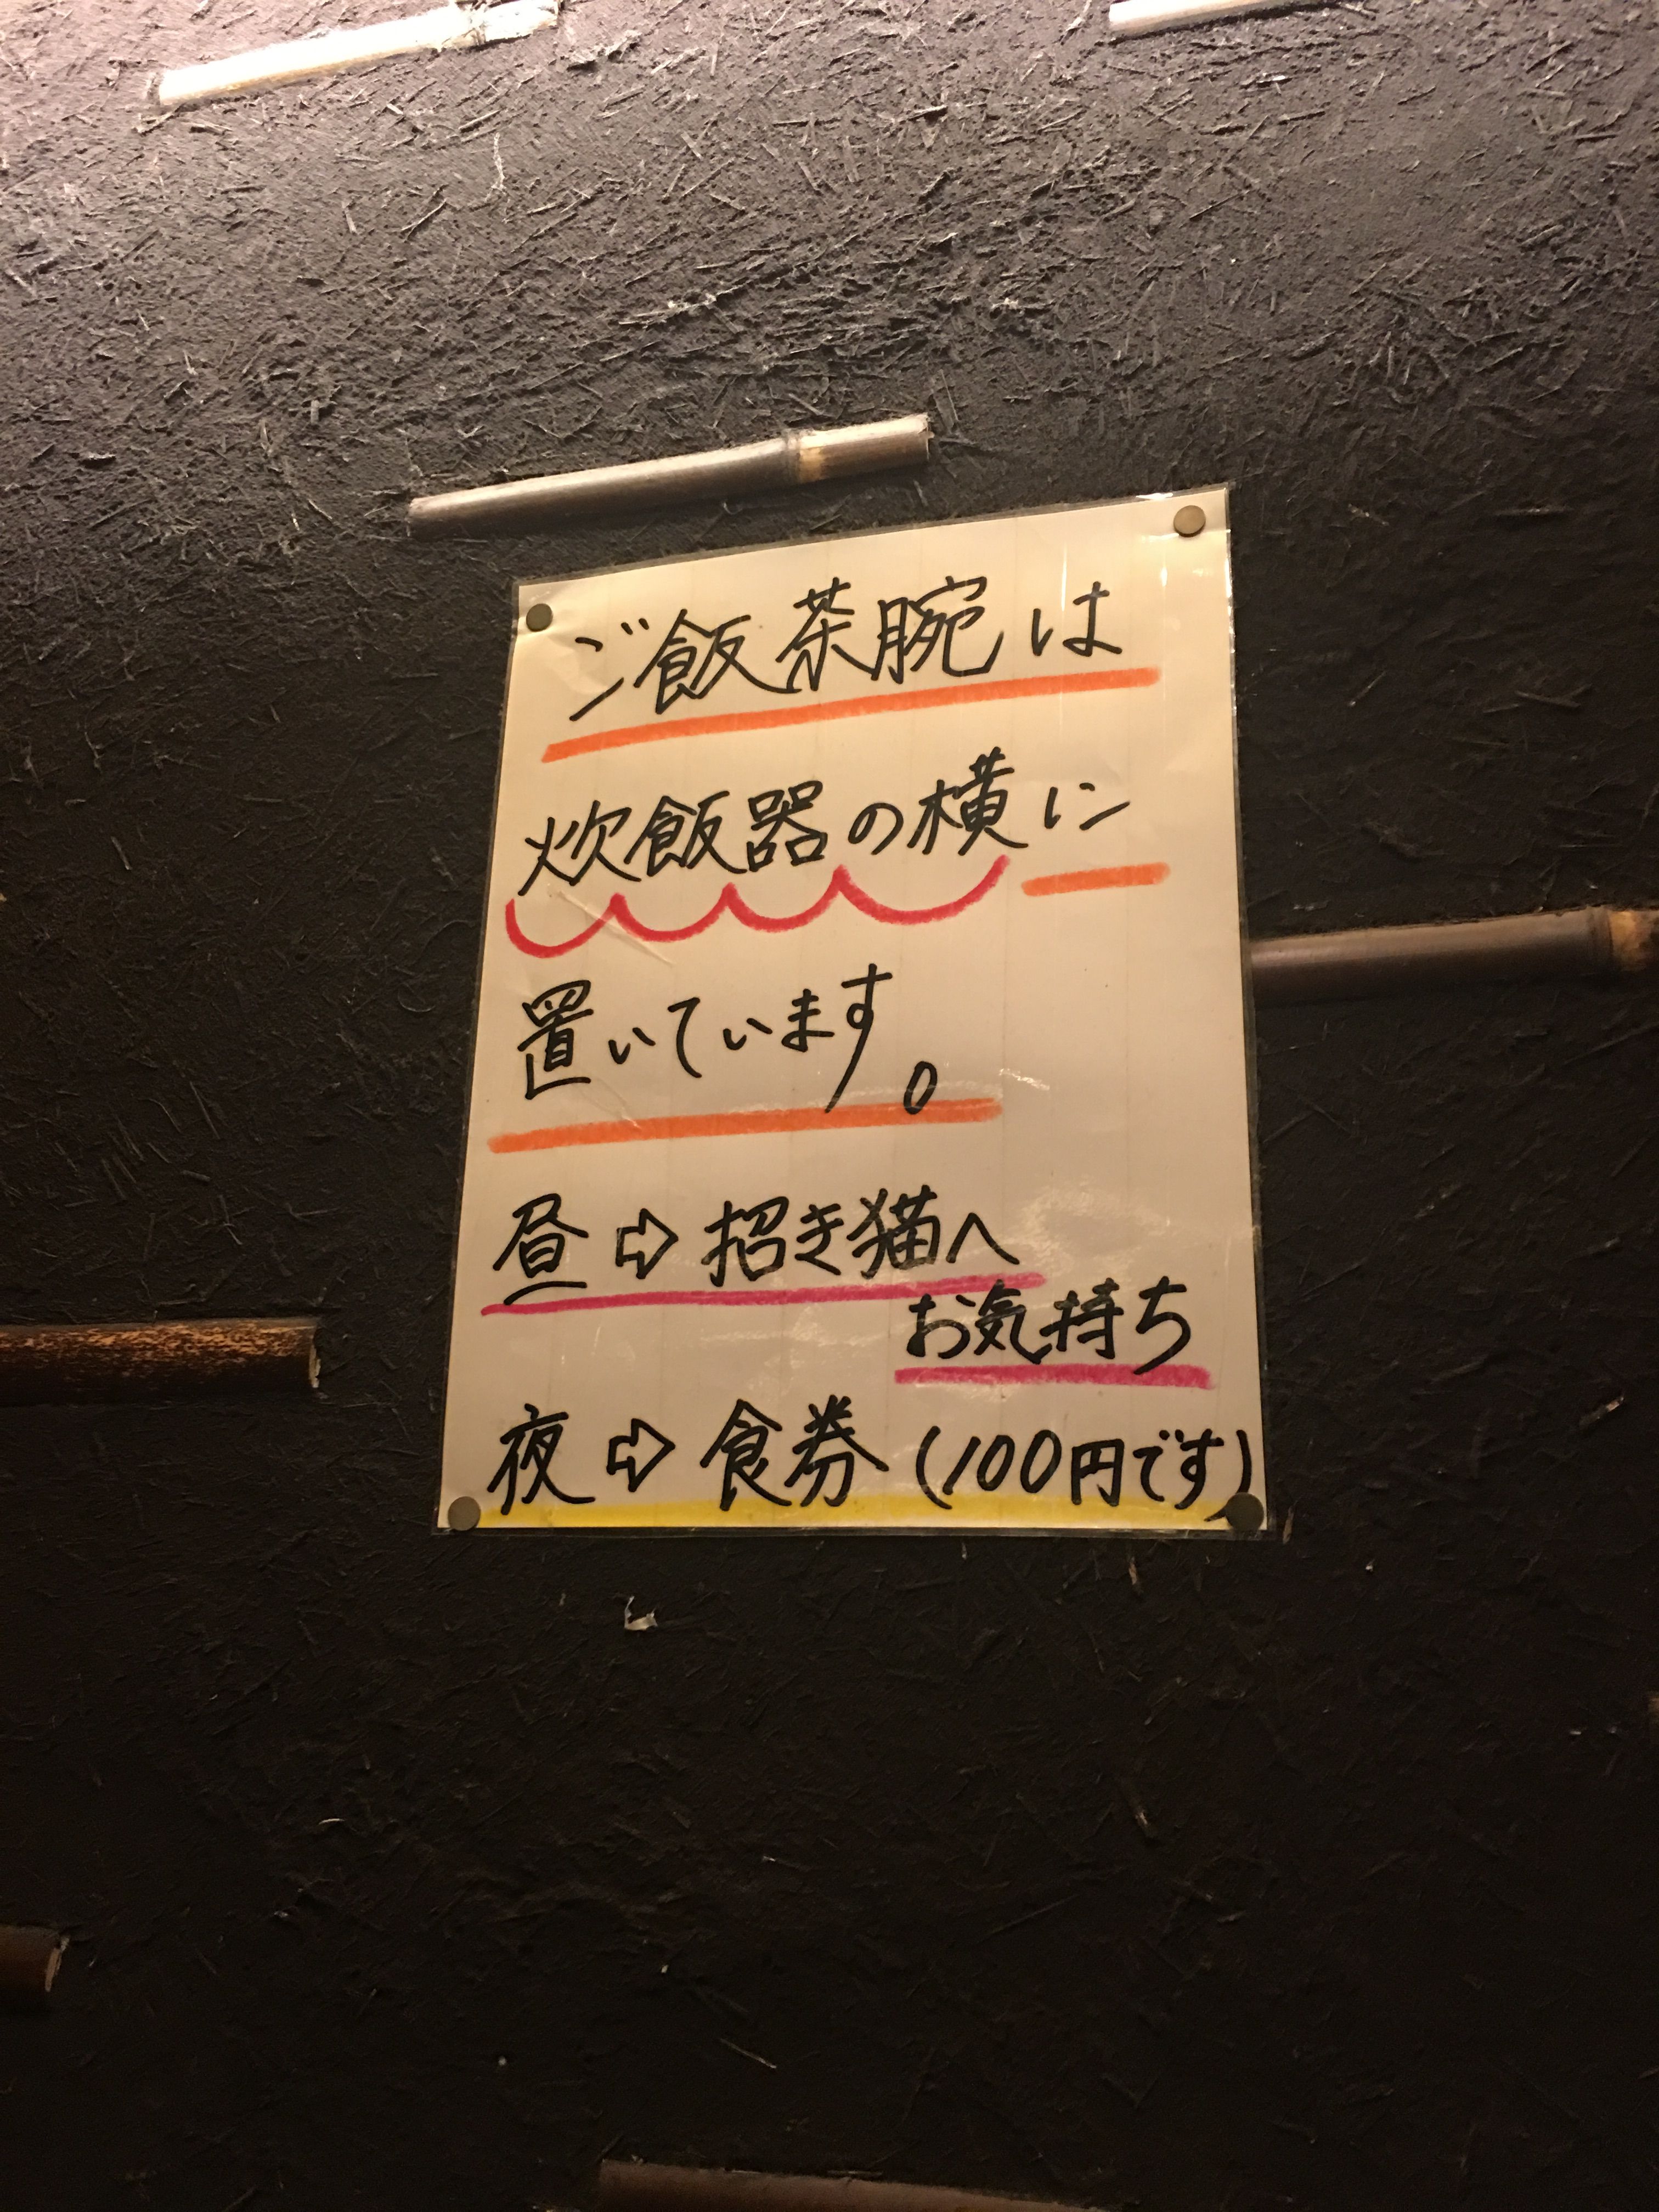 ご飯茶腕は
炊飯器の横に
置いています。
昼⇨招き猫へ
お気持ち
夜⇨食券(100円です)